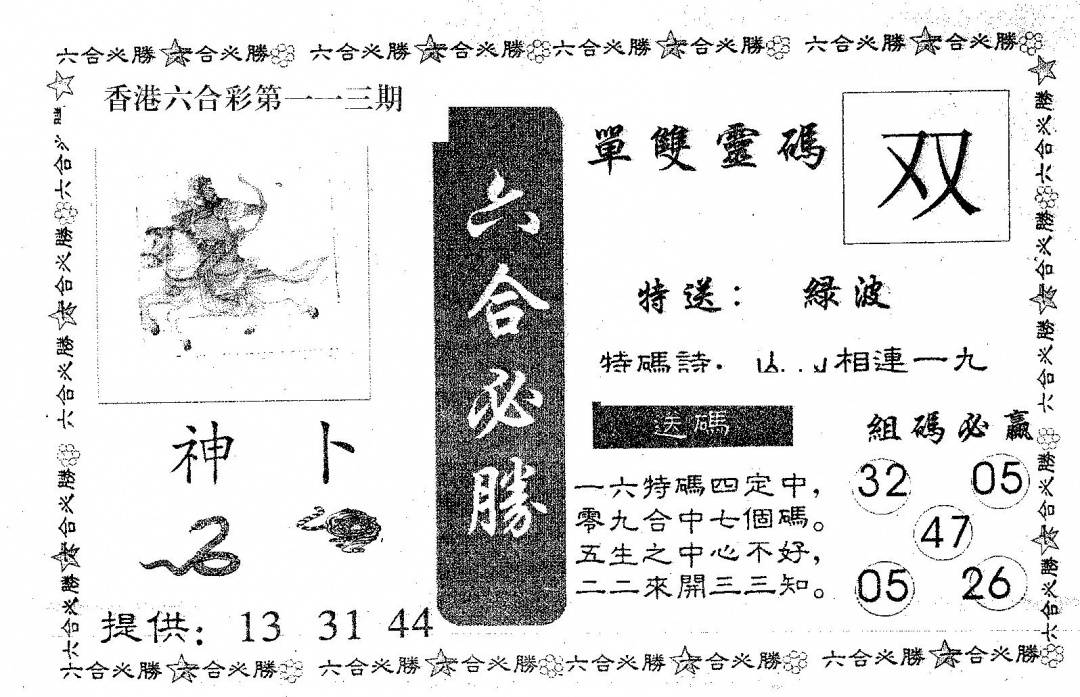 六合必勝 六合必勝 六合必勝 六合必勝 六合必勝 六合必勝 六合必勝 六合必勝
香港六合彩第一一三期
神卜
提供: 13 31 44
六合必勝
單雙靈碼
双
特送: 緑波
特碼詩. 相連一九
送碼
一六特碼四定中,
零九合中七個碼。
五生之中心不好,
二二來開三三知。
組碼必贏
32 05
47
05 26
六合必勝 六合必勝 六合必勝 六合必勝 六合必勝 六合必勝 六合必勝 六合必勝